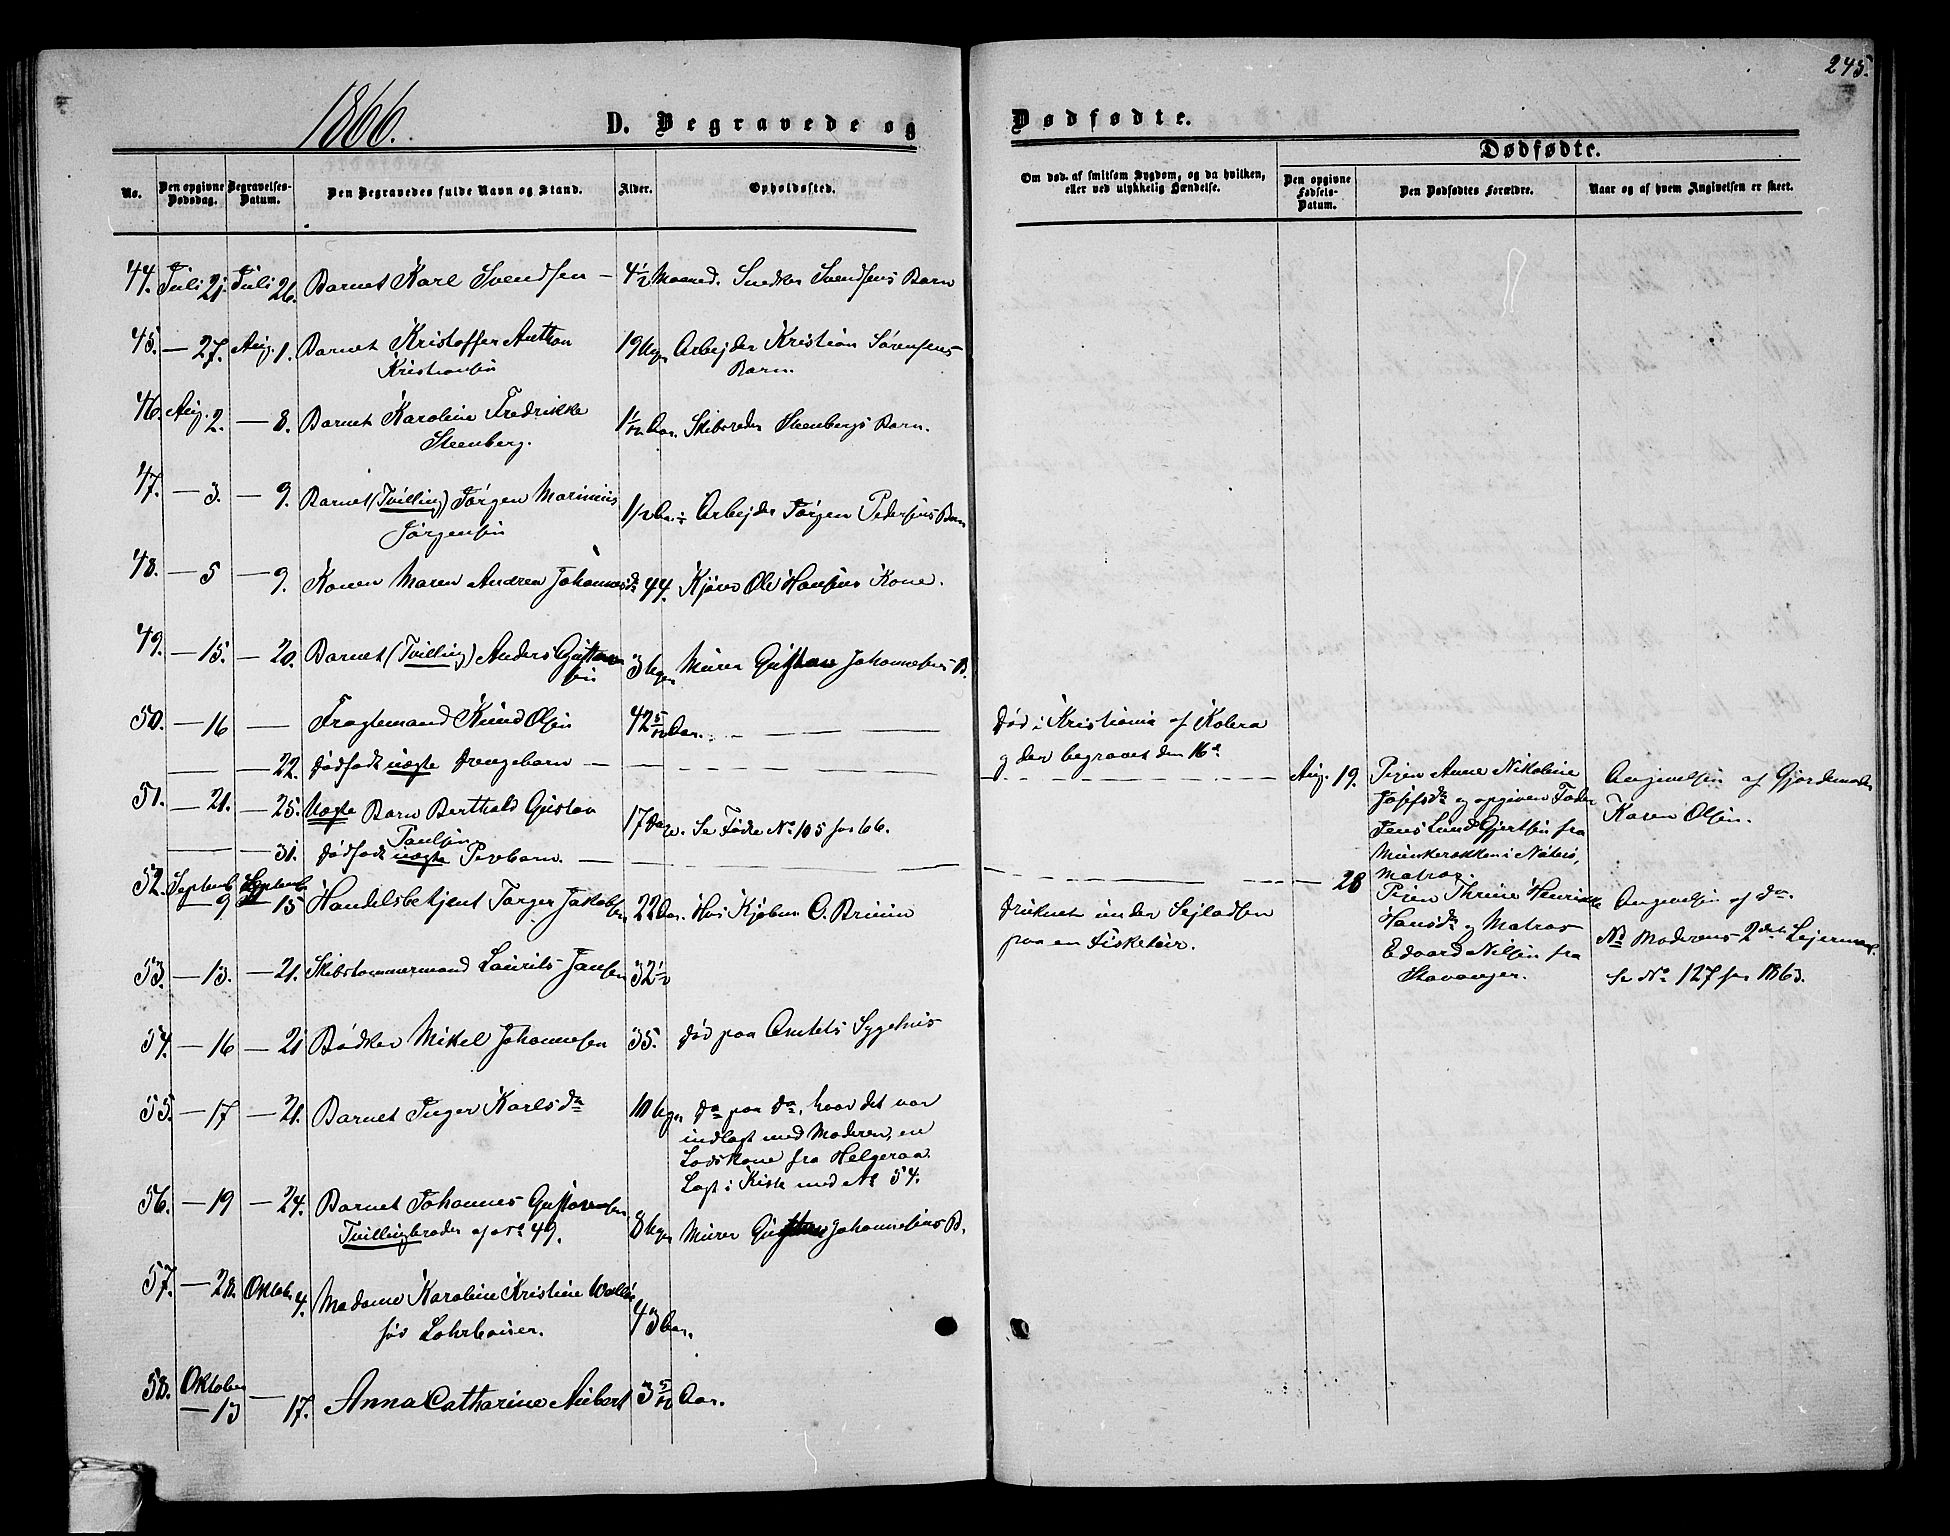 245.
1866.
D. Begravede og Dødfødte.
Dødfødte.
No.
Den opgivne Dødsdag.
Begravelses-Datum.
Den Begravedes fulde Navn og Stand.
Alder.
Opholdssted.
Om død af smitsom Sygdom, og da hvilken, eller ved ulykkelig Hændelse.
Den opgivne Fødsels-Datum.
Den Dødfødtes Forældre.
Naar og af hvem Angivelsen er skeet.
44. Juli 21. Juli 26. Barnet Karl Svendsen — 4½ Maaned. Snedker Svendsens Barn
45. — 27. Aug. 1. Barnet Kristoffer Anthon 19 Uger Arbejder Kristian Sørensens
Kristiansen Barn.
46. Aug. 2. — 8. Barnet Karoline Fredrikke 1 1/12 Aar. Skibsreder Steenbergs Barn.
Steenberg.
47. — 3. — 9. Barnet (Tvilling) Jørgen Marinius 1½ Aar Arbejder Jørgen Pedersens Barn
Jørgensen
48. — 5 — 9. Konen Maren Andrea Johannesdr 44. Kjører Ole Hansens Kone.
49. — 15. — 20. Barnet (Tvilling) Anders Gustavsen 3 Uger Murer Gustav Johannesens B.
50. — 16 — Fragtemand Knud Olsen 42 5/12 Aar. død i Kristiania af Kolera
og der begravet den 16de
— — 22. dødfødt uægte Drengebarn — Aug. 19. Pigen Anne Nikoline
Josefsdr og opgiven Fader
Jens Lund Gjertsen fra
Munkerekken i Nøterø,
Matros.
Angivelsen af Gjordemoder
Karen Olsen.
51. — 21. — 25. Uægte Barn Berthold Gustav 17 Dage. Se Fødte No 105 for 66.
Paulsen
— — 31. dødfødt uægte Pigebarn. — 28 Pigen Thrine Henrikke
Hansdr og Matros
Edvard Nilsen fra
Stavanger.
Angivelsen af do.
NB Moderens 2det Lejermaal
se No 127 for 1863.
52. Septemb. — 9 Septemb. — 15 Handelsbetjent Torger Jakobsen 22 Aar. Hos Kjøbm. O. Bruun druknet under Sejladsen
paa en Fisketour.
53. — 13. — 21. Skibstømmermand Laurits Jansen 32½
54. — 16 — 21 Bødker Mikel Johannesen 35. død paa Amtets Sygehus
55. — 17 — 21. Barnet Inger Karlsdr 10 Uger do paa do, hvor det var
indlagt med Moderen, en
Lodskone fra Helgeraa.
Lagt i Kiste med No 54.
56. — 19 — 24. Barnet Johannes Gustavsen 8 Uger Murer Gustav Johannesens B.
Tvillingbroder af No 49.
57. — 28. Oktober 4. Madame Karoline Kristine 43 Aar.
før Lohrbauer.
58. Oktober — 13 — 17. Anna Catharine Aubert 3 5/12 Aar.